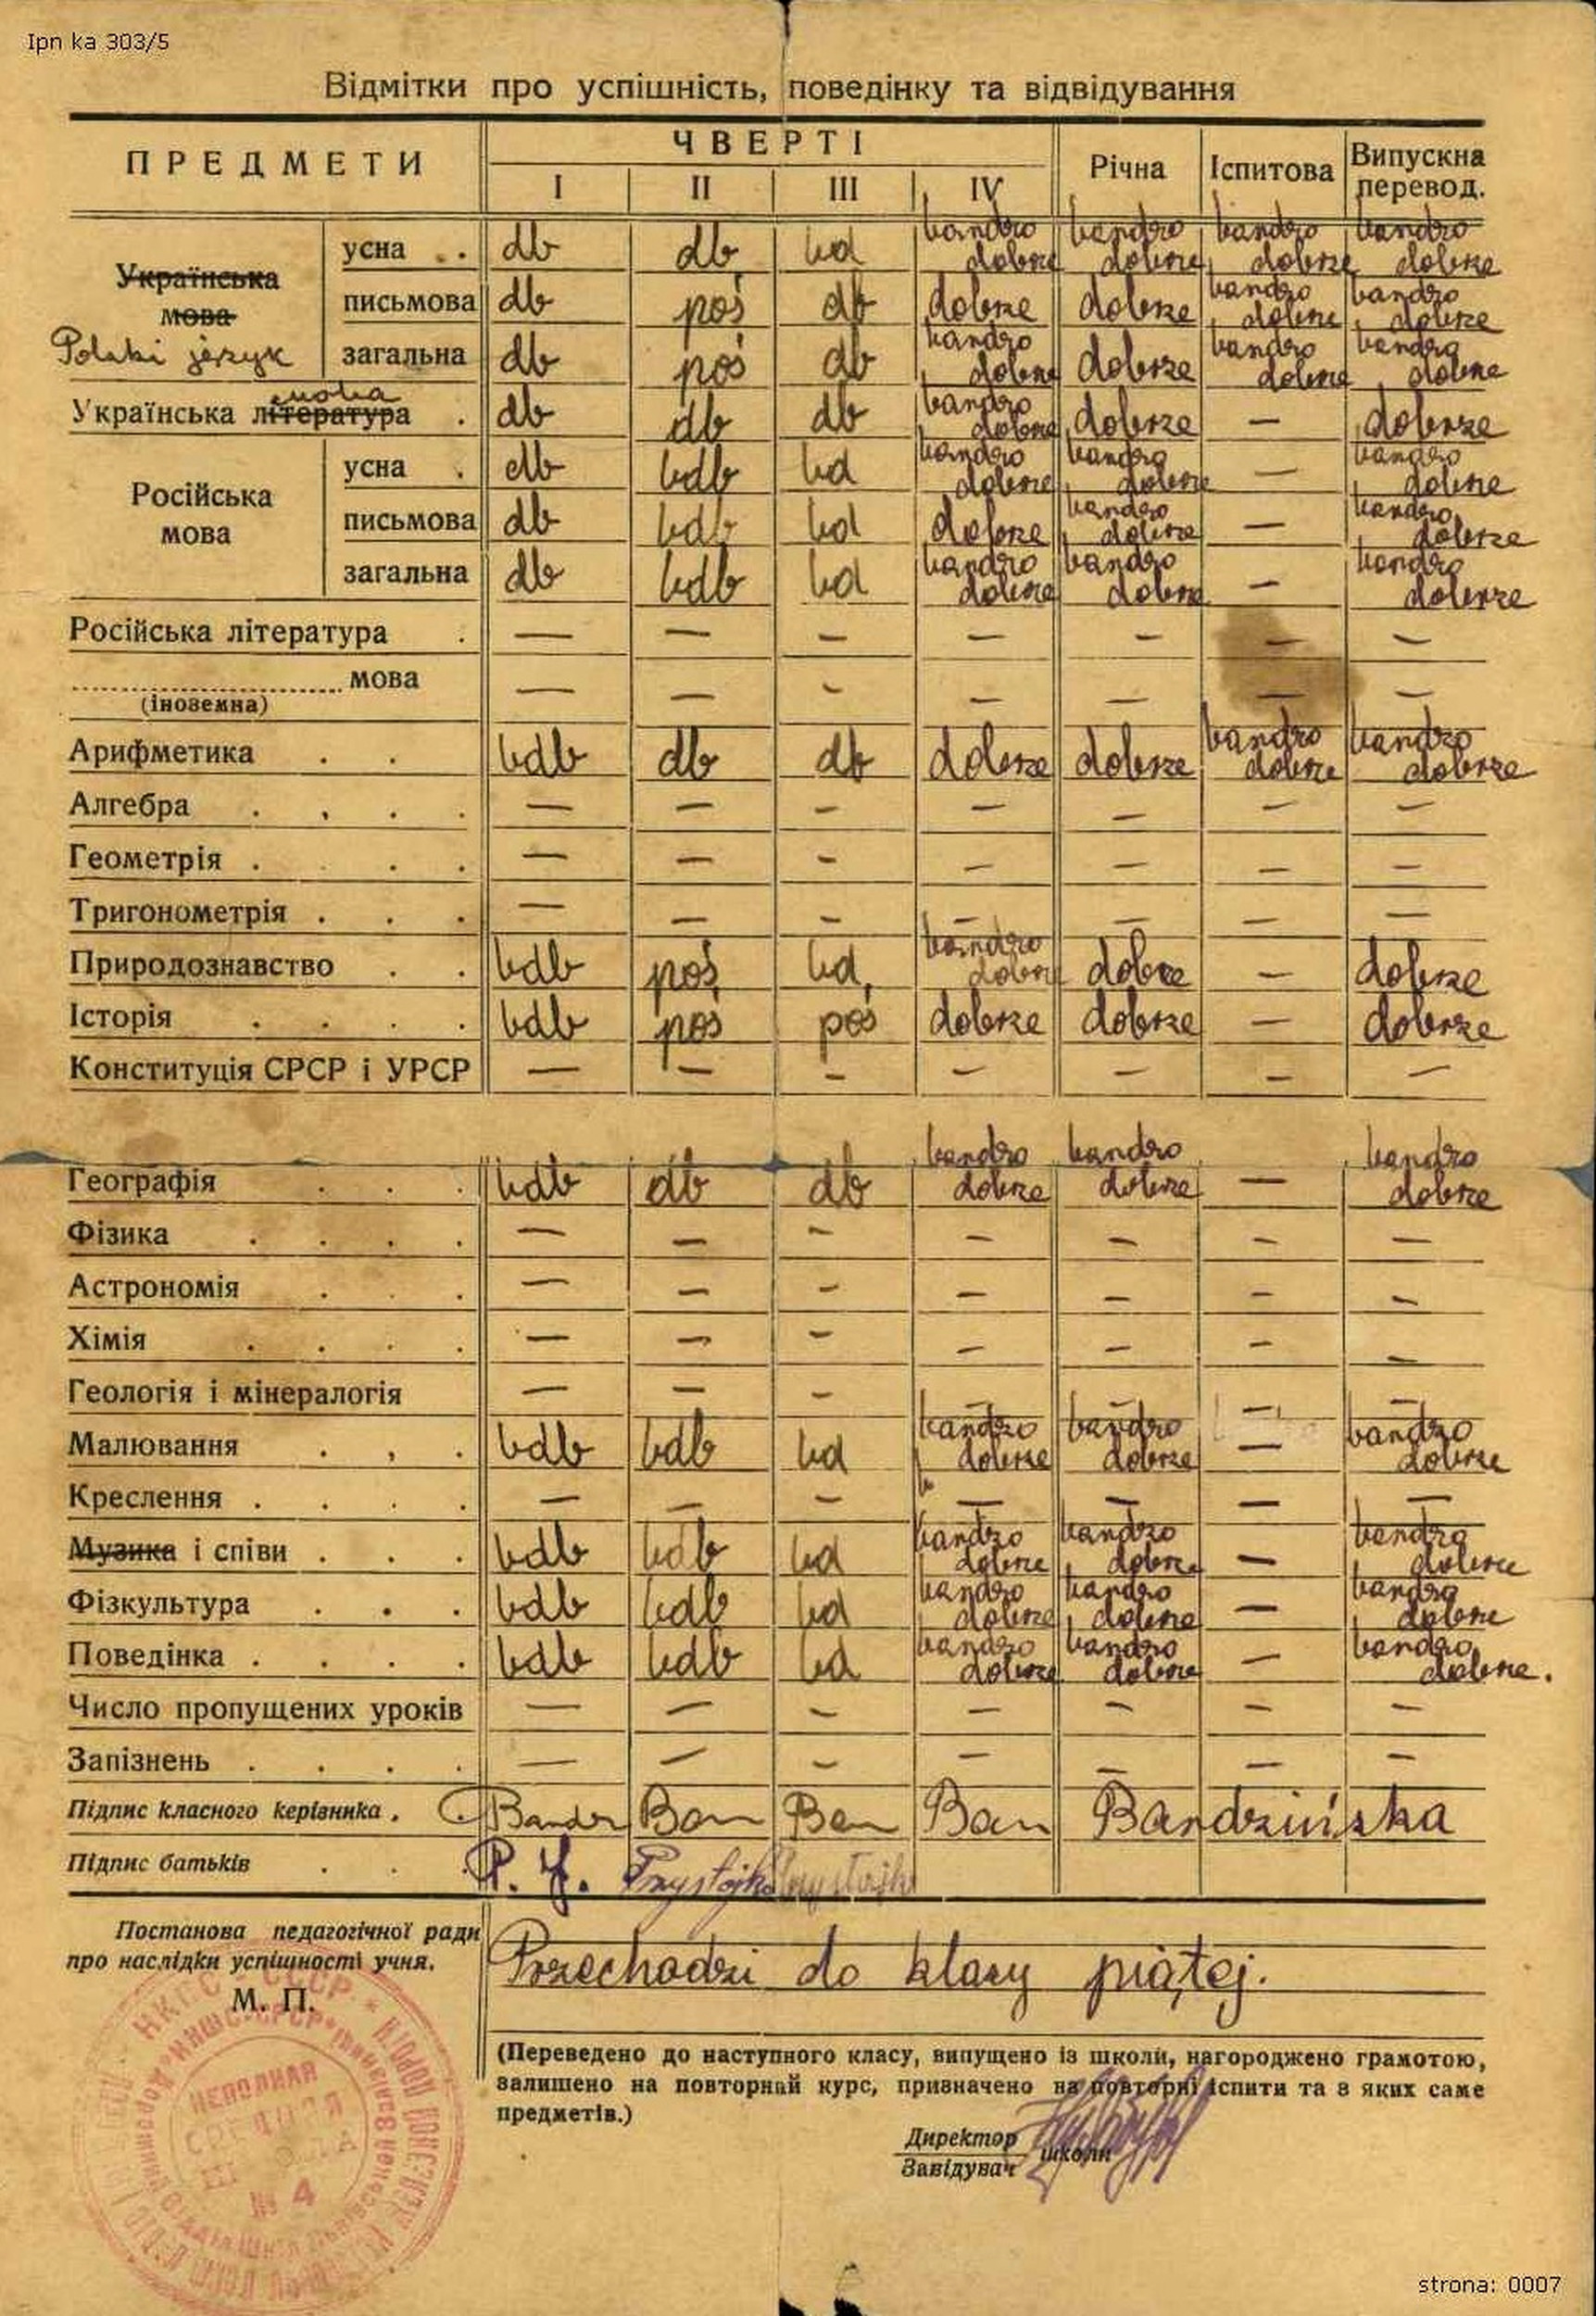 Ipn ka 303/5
Відмітки про успішність, поведінку та відвідування
ПРЕДМЕТИ ЧВЕРТІ Річна Іспитова Випускна перевод.
I II III IV
Українська мова Polski język усна db db bd bardzo dobrze bardzo dobrze bardzo dobrze bardzo dobrze
письмова db poś db dobrze dobrze bardzo dobrze bardzo dobrze
загальна db poś db bardzo dobrze dobrze bardzo dobrze bardzo dobrze
Українська література мова db db db bardzo dobrze dobrze — dobrze
Російська мова усна db bdb bd bardzo dobrze bardzo dobrze — bardzo dobrze
письмова db bdb bd dobrze bardzo dobrze — bardzo dobrze
загальна db bdb bd bardzo dobrze bardzo dobrze — bardzo dobrze
Російська література — — — — — — —
мова — — — — — — —
(іноземна)
Арифметика bdb db db dobrze dobrze bardzo dobrze bardzo dobrze
Алгебра — — — — — — —
Геометрія — — — — — — —
Тригонометрія — — — — — — —
Природознавство bdb poś bd, bardzo dobrze dobrze — dobrze
Історія bdb poś poś dobrze dobrze — dobrze
Конституція СРСР і УРСР — — — — — — —
Географія bdb db db bardzo dobrze bardzo dobrze — bardzo dobrze
Фізика — — — — — — —
Астрономія — — — — — — —
Хімія — — — — — — —
Геологія і мінералогія — — — — — — —
Малювання bdb bdb bd bardzo dobrze bardzo dobrze — bardzo dobrze
Креслення — — — — — — —
Музика і співи bdb bdb bd bardzo dobrze bardzo dobrze — bardzo dobrze
Фізкультура bdb bdb bd bardzo dobrze bardzo dobrze — bardzo dobrze
Поведінка bdb bdb bd bardzo dobrze bardzo dobrze — bardzo dobrze.
Число пропущених уроків — — — — — — —
Запізнень — — — — — — —
Підпис класного керівника. Bandz Ban Ban Ban Bandzińska
Підпис батьків P. J. Przystojko
Постанова педагогічної ради
про наслідки успішності учня.
М. П.
Przechodzi do klasy piątej.
(Переведено до наступного класу, випущено із школи, нагороджено грамотою,
залишено на повторний курс, призначено на повторні іспити та з яких саме
предметів.)
Директор
Завідувач школи
НЕПОЛНАЯ
СРЕДНЯЯ
№ 4
strona: 0007